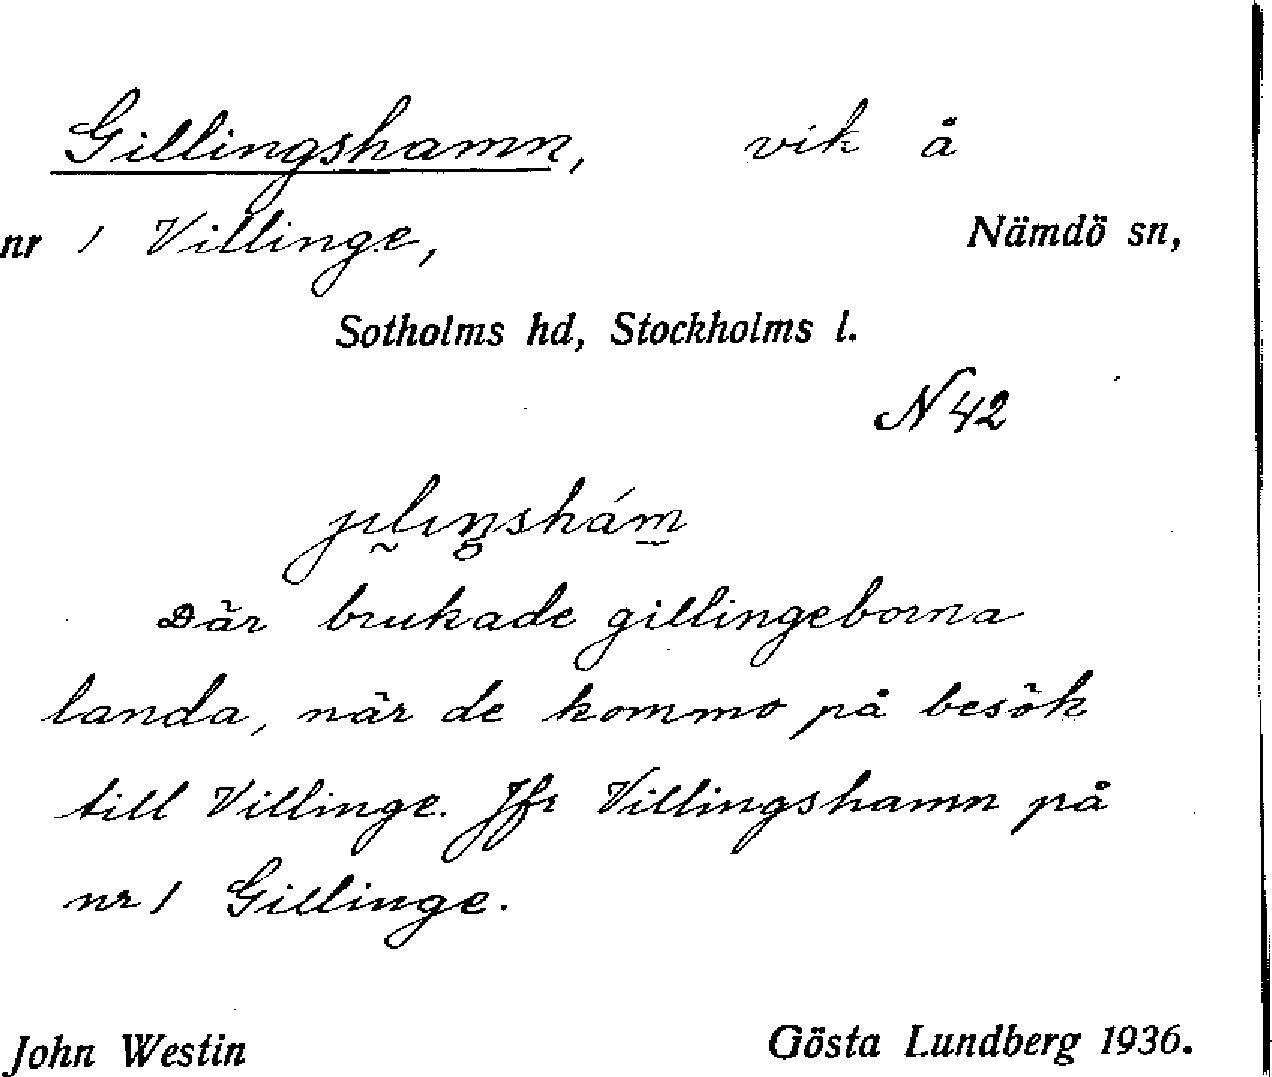 Gillingshamn, vik å
nr 1 Villinge, Nämdö sn,
Sotholms hd, Stockholms l.
N 42
Där brukade gillingeborna
landa, när de kommo på besök
till Villinge. Jfr Villingshamn på
nr 1 Gillinge.
John Westin Gösta Lundberg 1936.